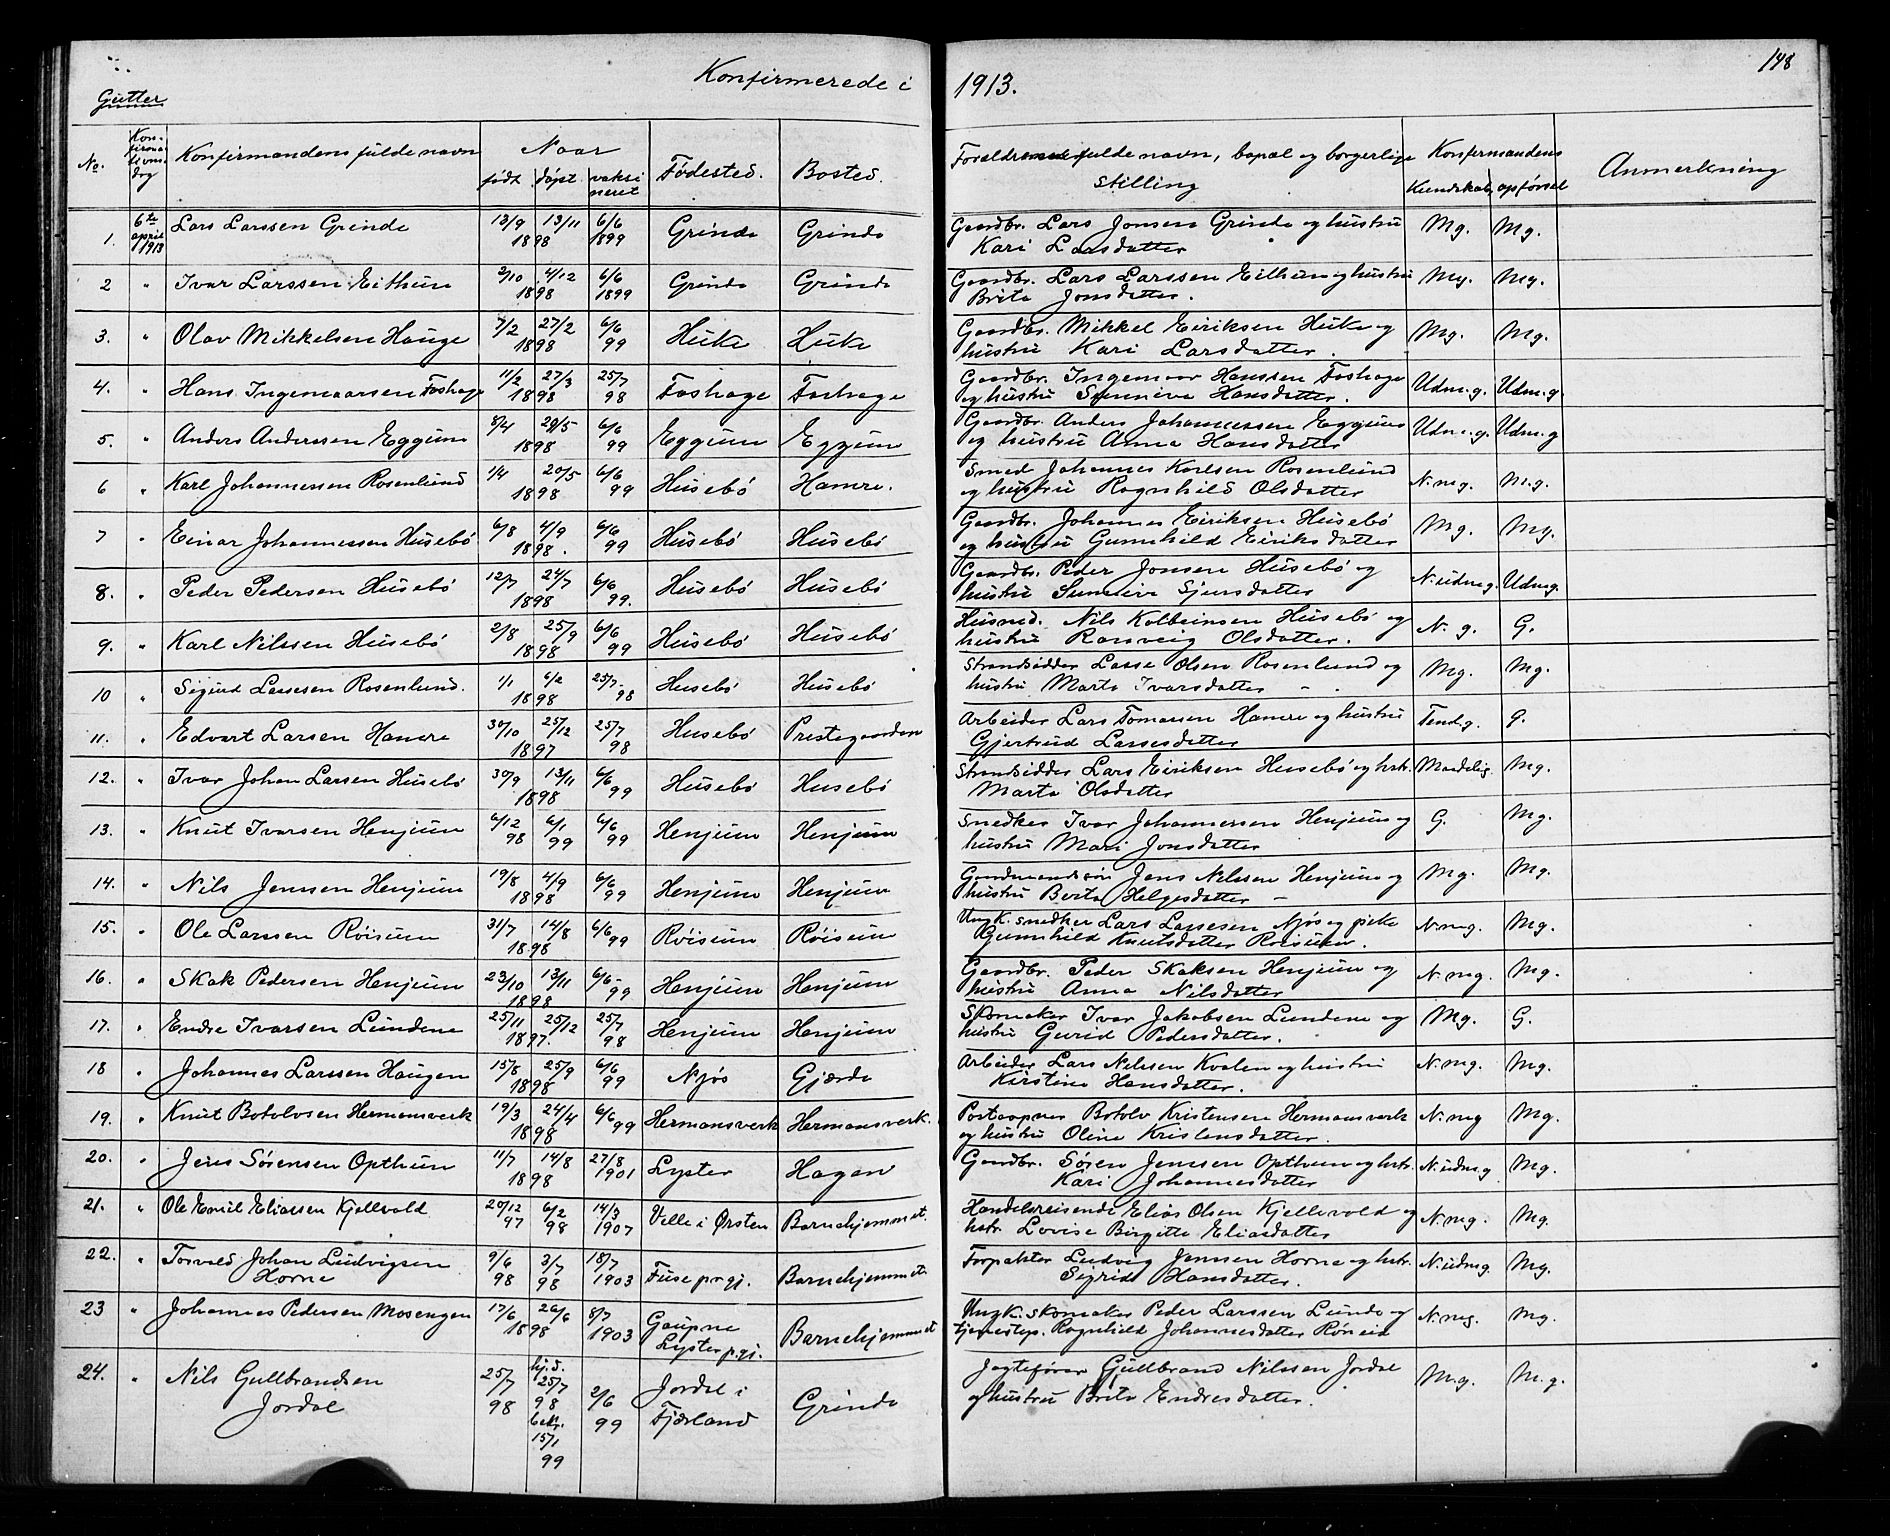 148
Konfirmerede i 1913.
Gutter
No. Konfirmationsdag Konfirmandens fulde navn Naar født døpt vaksineret Fødested. Bosted. Forældrenes fulde navn, bopæl og borgerlige stilling Konfirmandens Kundskab opførsel Anmerkning
1. 6te april 1913 Lars Larssen Grinde 13/9 13/11 1898 6/6 1899 Grinde Grinde Gaardbr. Lars Jonsen Grinde og hustru Kari Larsdatter Mg. Mg.
2 " Ivar Larssen Eithun 2/10 4/12 1898 6/6 1899 Grinde Grinde Gaardbr. Lars Larssen Eithun og hustru Brita Jonsdatter. Mg. Mg.
3. " Olav Mikkelsen Hauge 7/2 27/2 1898 6/6 99 Huke Huke Gaardbr. Mikkel Eiriksen Huke og hustru Kari Larsdatter. Mg. Mg.
4. " Hans Ingemaarsen Foshage 11/2 27/3 1898 25/7 98 Foshage Foshage Gaardbr. Ingemaar Hanssen Foshage og hustru Sunneva Hansdatter. Udm.g. Udm.g.
5. " Anders Anderssen Eggum 5/4 29/5 1898 6/6 99 Eggum Eggum Gaardbr. Anders Johannessen Eggum og hustru Anna Hansdatter Udm.g. Udm.g
6 " Karl Johannessen Rosenlund 1/4 20/5 1898 6/6 99 Husebø Hamre. Smed Johannes Karlsen Rosenlund og hustru Ragnhild Olsdatter N.mg. M.g.
7 " Einar Johannessen Husebø 6/8 4/9 1898. 6/6 99 Husebø Husebø Gaardbr. Johannes Eiriksen Husebø og hustru Gunnhild Eiriksdatter Mg. Mg.
8. " Peder Pedersen Husebø 12/7 24/7 1898 6/6 99. Husebø Husebø Gaardbr. Peder Jonsen Husebø og hustru Sunneva Sjursdatter N.udm.g. Udm.g.
9. " Karl Nilssen Husebø 2/8 25/9 1898 6/6 99 Husebø Husebø Husmd. Nils Kolbeinsen Husebø og hustru Ranveig Olsdatter. N. g. G.
10 " Sigurd Lassesen Rosenlund. 1/1 6/2 1898 25/7 98 Husebø Husebø Strandsidder Lasse Olsen Rosenlund og hustru Marta Ivarsdatter - . Mg. Mg.
11. " Edvart Larsen Hamre 30/10 25/12 1897 25/7 98 Husebø Prestegaarden Arbeider Lars Tomassen Hamre og hustru Gjertrud Lassesdatter Temd.g. G.
12. " Ivar Johan Larssen Husebø 30/9 13/11 1898 6/6 99 Husebø Husebø Strandsidder Lars Eiriksen Husebø og hstr. Marta Olsdatter Maadelig. Mg.
13. " Knut Ivarsen Henjum 6/12 98 6/1 99 6/6 99 Henjum Henjum Snedker Ivar Johannessen Henjum og hustru Mari Jonsdatter G. Mg.
14. " Nils Jenssen Henjum 19/8 4/9 1898 6/6 99 Henjum Henjum Gaardmandssøn Jens Nilssen Henjum og hustru Berta Helgesdatter - Mg. Mg.
15. " Ole Larssen Røisum 31/7 14/8 1898 6/6 99 Røisum Røisum Ungk. snedker Lars Lassesen Njøs og pike Gunnhild Knutsdatter Røisum. N.mg. Mg.
16. " Skak Pedersen Henjum 23/10 13/11 1898 6/6 99 Henjum Henjum Gaardbr. Peder Skaksen Henjum og hustru Anna Nilsdatter N.mg. Mg.
17. " Endre Ivarsen Lundene 25/11 25/12 1897. 25/7 98 Henjum Henjum Skomaker Ivar Jakobsen Lundene og hustru Gurid Pedersdatter. Mg. G.
18 " Johannes Larssen Haugen 15/8 25/9 1898 6/6 99 Njøs Gjærde Arbeider Lars Nilssen Kvalen og hustru Kirstine Hansdatter. N.mg. Mg.
19. " Knut Botolvsen Hermansverk 19/3 24/4 1898 6/6 99 Hermansverk Hermansverk. Postaapner Botolv Kristensen Hermansverk og hustru Oline Kristensdatter. N.mg Mg.
20. " Jens Sørensen Opthun 11/7 14/8 1898 27/8 1901 Lyster Hagen Gaardbr. Søren Jenssen Opthun og hstr. Kari Johannesdatter N.udm.g Mg.
21. " Ole Emil Eliassen Kjellvold 20/12 97 6/2 98 14/3 1907 Velle i Ørsten Barnehjemmet. Handelsreisende Elias Olsen Kjellevold og hstr. Lovise Birgitte Eliasdatter N.mg. Mg.
22. " Torvald Johan Ludvigsen Horne 9/6 98 3/7 98 18/7 1903 Fuse prgj. Barnehjemmet. Forpakter Ludvig Jenssen Horne og hstr. Sigrid Hansdatter. N.udm.g Mg.
23 " Johannes Pedersen Mosengen 17/6 26/6 1898 8/7 1903 Gaupne Lyster p.gj. Barnehjemmet Ungk. skomaker Peder Larssen Lunde og tjenestep. Ragnhild Johannesdatter Røneid N.mg. Mg.
24. " Nils Gullbrandsen Jordal 25/7 98 hj.d. 25/7 98 bekr. 15/1 99 2/6 99 Jordal i Fjærland Grinde Jagtefører Gullbrand Nilssen Jordal og hustru Brita Endresdatter. M.g. M.g.